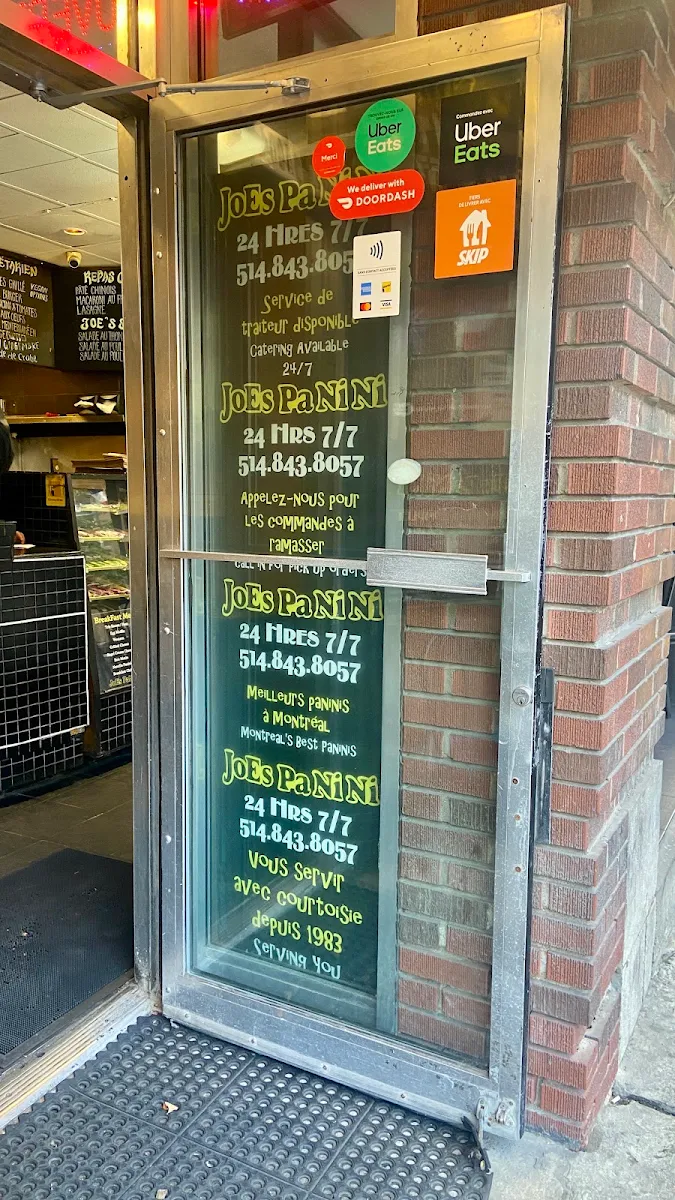 Merci
Uber
Eats
Commandez avec
Uber
Eats
We deliver with
DOORDASH
SKIP
VISA
JoEs PaNiNi
24 HRES 7/7
514.843.805
Service de
traiteur disponible
Catering Available
24/7
JoEs PaNiNi
24 HRS 7/7
514.843.8057
Appelez-nous pour
les commandes à
ramasser
Call in for pick up orders
JoEs PaNiNi
24 HRES 7/7
514.843.8057
Meilleurs paninis
à Montréal
Montreal's Best Paninis
JoEs PaNiNi
24 HRS 7/7
514.843.8057
Vous servir
avec courtoisie
depuis 1983
Serving you
REPAS
PÂTÉ CHINOIS
MACARONI AU
LASAGNE
JOE'S
SALADE AU THON
SALADE AU POUL
SALADE AU POUL
BURGER
Breakfast